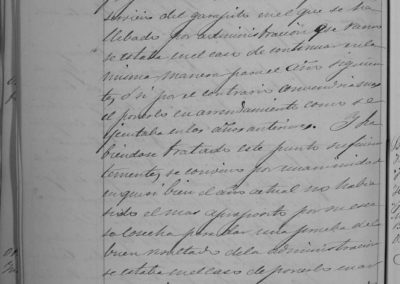 servicio del garapito en el que se ha
llebado por administracion que razones
se estaba en el caso de continuar en la
misma manera para el año siguien
te, ó si por el contrario convendria mas
el ponerlo en arrendamiento como se
ejecutaba en los años anteriores. Y ha
biendose tratado este punto suficien
temente, se convino por unanimidad
en que si bien el año actual no habia
sido el mas aproposito por su esca
sa cosecha para dar una prueba del
buen resultado de la administracion
se estaba en el caso de ponerlo en ar